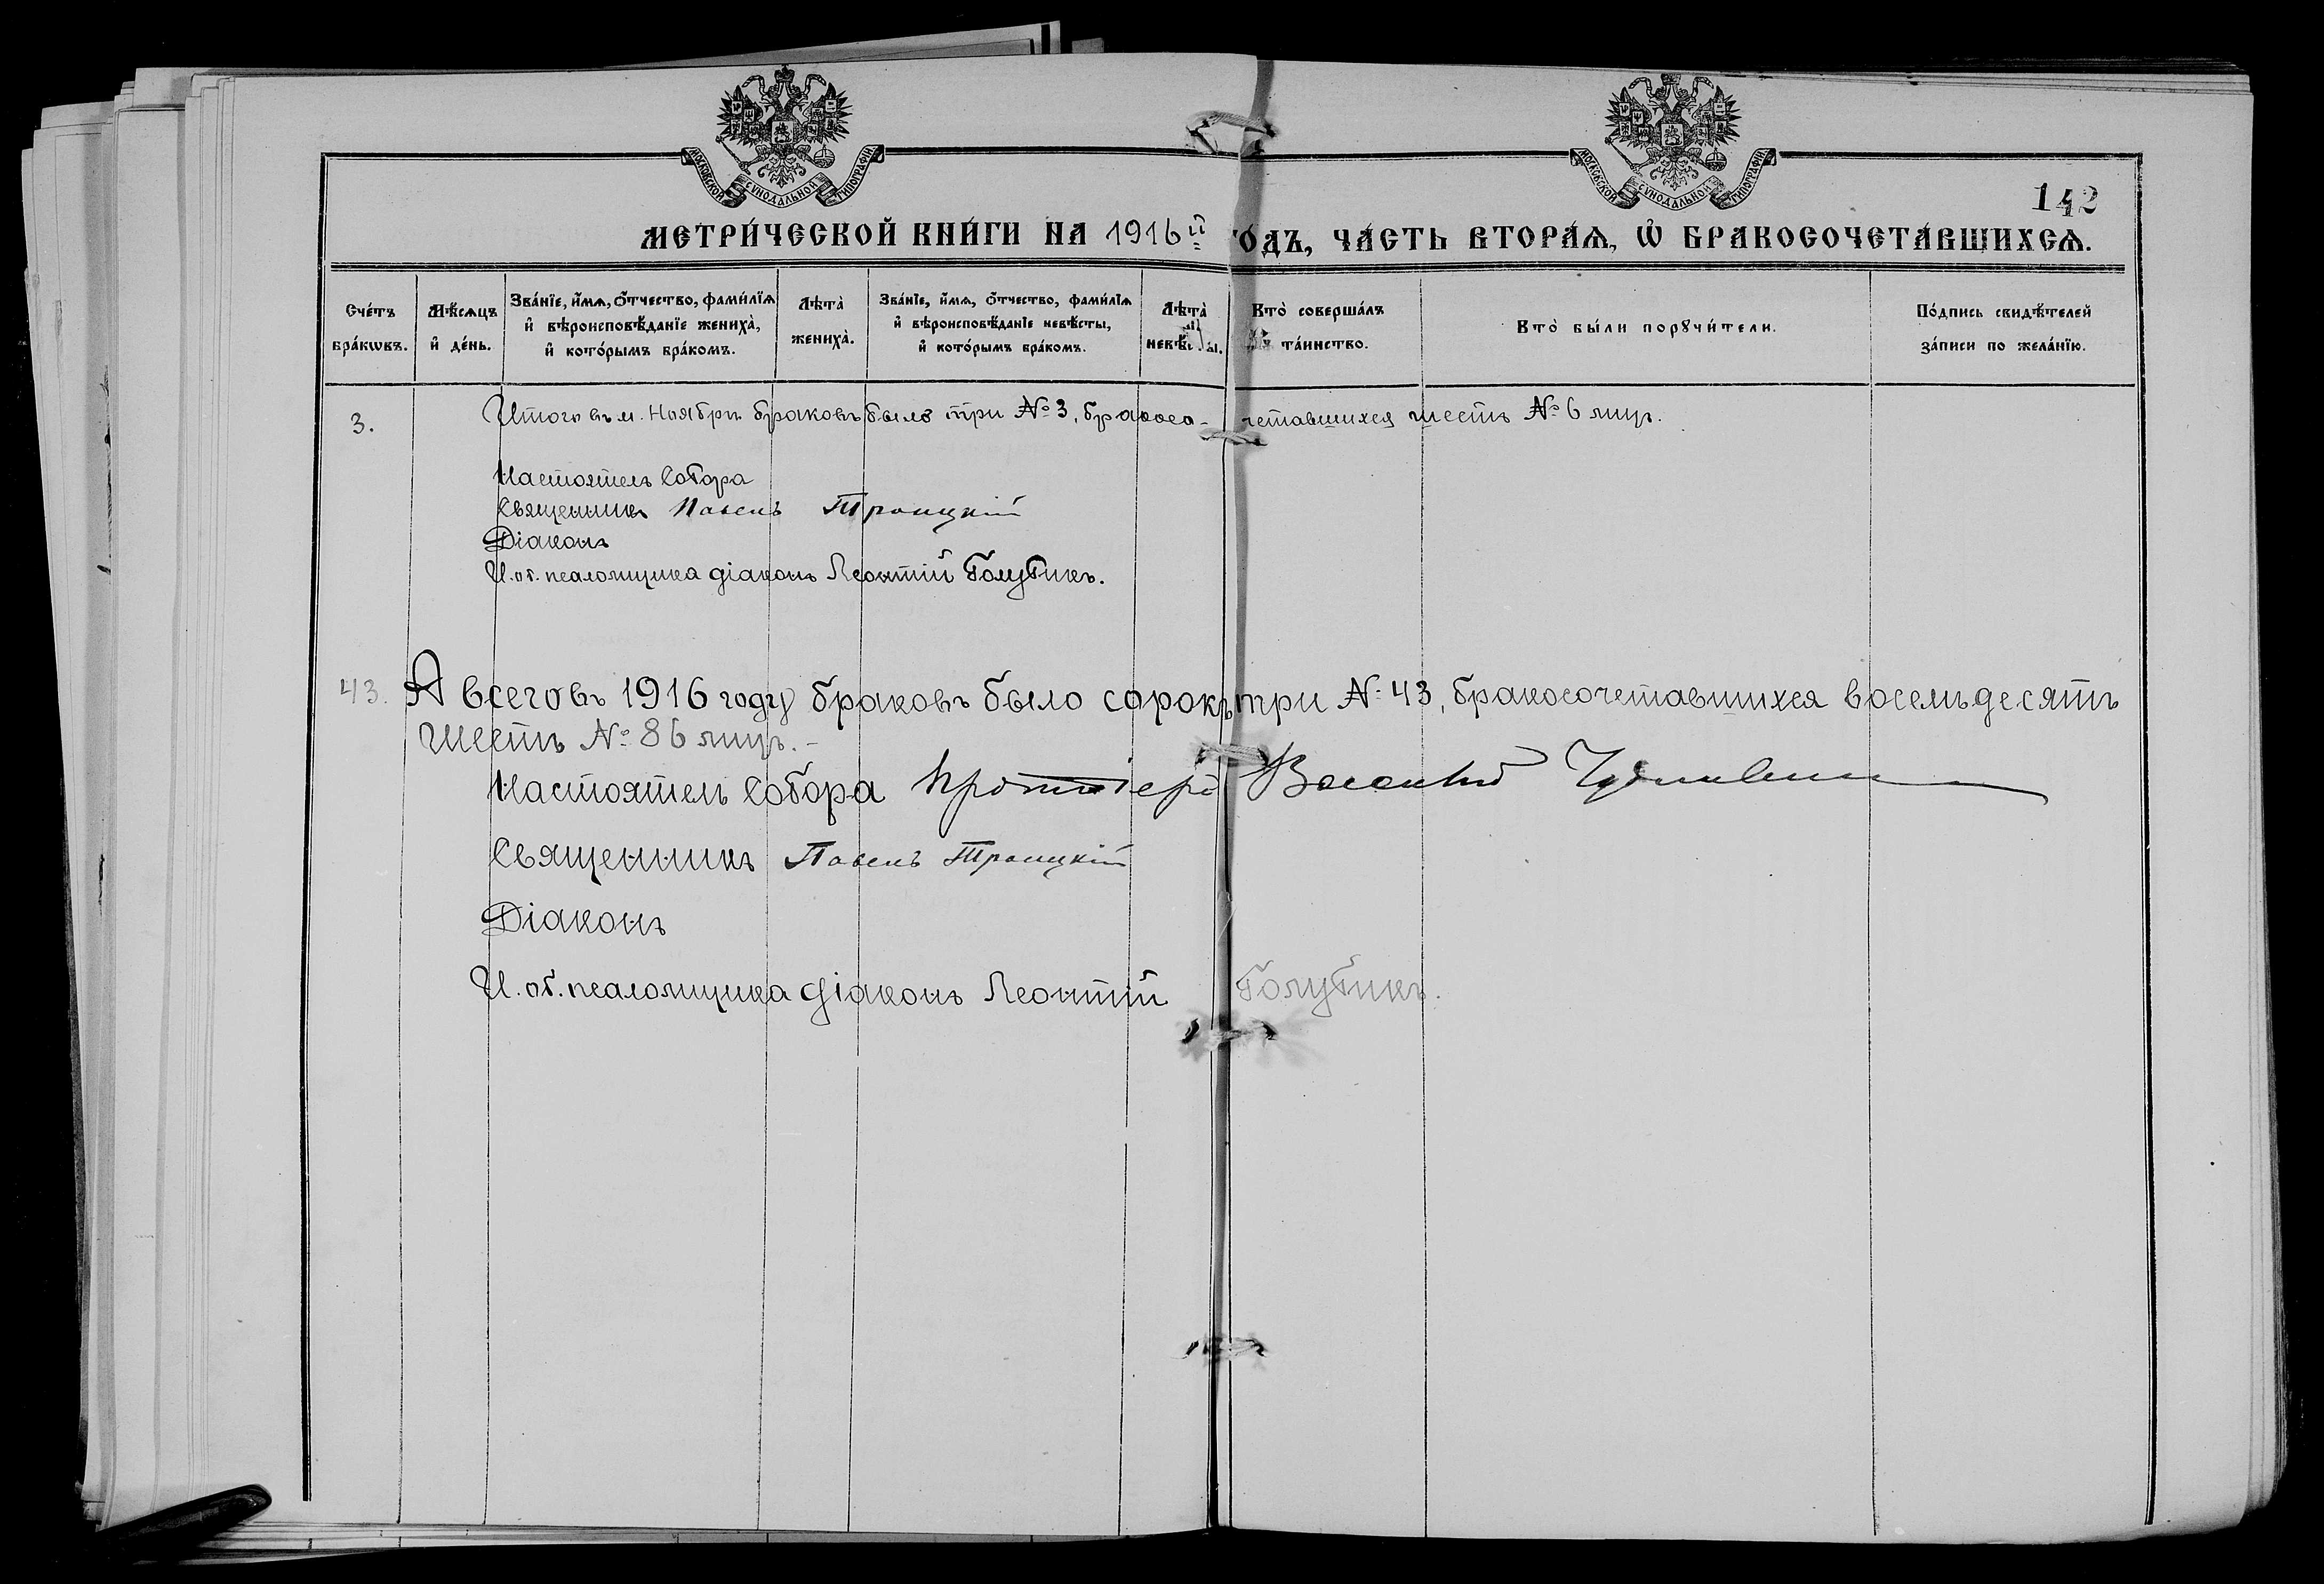 МОСКОВСКОЙ СѴНОДАЛЬНОЙ ТИПОГРАФІИ
МОСКОВСКОЙ СѴНОДАЛЬНОЙ ТИПОГРАФІИ
142
МЕТРИ́ЧЕСКОЙ КНИ́ГИ НА 1916й ГО́ДЪ, ЧА́СТЬ ВТОРА́Ѧ, Ѡ҆ БРАКОСОЧЕТА́ВШИХСѦ.
Сче́тъ
бра́кѡвъ.
Мѣ́сѧцъ
и҆ де́нь.
Зва́нїе, и҆́мѧ, ѻ҆́тчество, фами́лїѧ
и҆ вѣроисповѣ́данїе жениха̀,
и҆ кото́рымъ бра́комъ.
Лѣта̀
жениха̀.
Зва́нїе, и҆́мѧ, ѻ҆́тчество, фами́лїѧ
и҆ вѣроисповѣ́данїе невѣ́сты,
и҆ кото́рымъ бра́комъ.
Лѣта̀
невѣ́сты.
Кто̀ соверша́лъ
та́инство.
Кто̀ бы́ли порꙋчи́тели.
По́дпись свидѣ́телей
за́писи по жела́нїю.
3. Итого въ м. Ноябрѣ браковъ было три № 3, бракосо-четавшихся шесть № 6 лицъ.
Настоятель Собора
Священникъ Павелъ Троицкій
Діаконъ
И. об. псаломщика діаконъ Леонтій Голубикъ.
43. А всего въ 1916 году браковъ было сорокъ три № 43, бракосочетавшихся восемьдесятъ
шесть № 86 лицъ. -
Настоятель Собора Протоіерей Василій
Священникъ Павелъ Троицкій
Діаконъ
И. об. псаломщика діаконъ Леонтій Голубикъ.